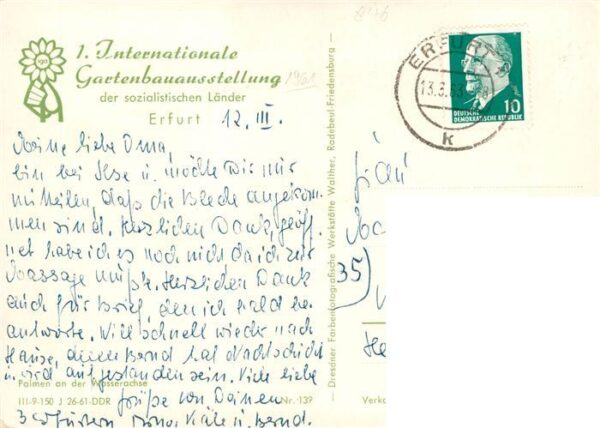 iga
1. Internationale
Gartenbauausstellung 1961
der sozialistischen Länder
Erfurt
12. III.
Meine liebe Oma,
bin bei Ilse u. möchte Dir nur
mitteilen, daß die Bleche angekom-
men sind. Herzlichen Dank, geöff-
net habe ich es noch nicht da ich zur
Massage mußte. Herzlichen Dank
auch für Brief, den ich bald be-
antworte. Will schnell wieder nach
Hause, denn Bernd hat Nachtschicht
u. wird aufgestanden sein. Viele liebe
Grüße von Deinen
3 Erfurtern Bernd.
Palmen an der Wasserachse
III-9-150 J 26-61-DDR
Nr. 139
— Dresdner Farbenfotografische Werkstätte Walther, Radebeul-Friedensburg —
ERFURT
13.3.63
k
10
DEUTSCHE
DEMOKRATISCHE REPUBLIK
Frau
35)
Verka